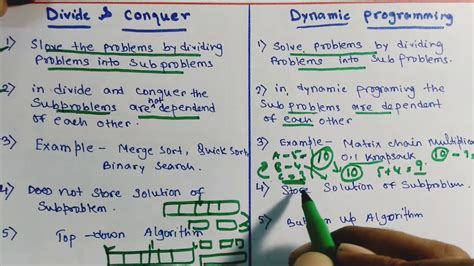 Divide & Conquer
1) Slove the problems by dividing
Problems into Subproblems
2) in divide and conquer the
Subproblems are not dependent
of each other.
3) Example - Merge Sort, Quick Sort,
Binary Search.
4) Does not Store Solution of
Subproblem.
5) Top-down Algorithm
Dynamic Programming
1) Solve problems by dividing
Problems into Subproblems.
2) in dynamic programing the
Subproblems are dependent
of each other
3) Example - Matrix chain Multiplica
0.1 Knapsack
A-5-
10
10
5+4=9
4) Store Solution of Subproblem
5) Up Algorithm